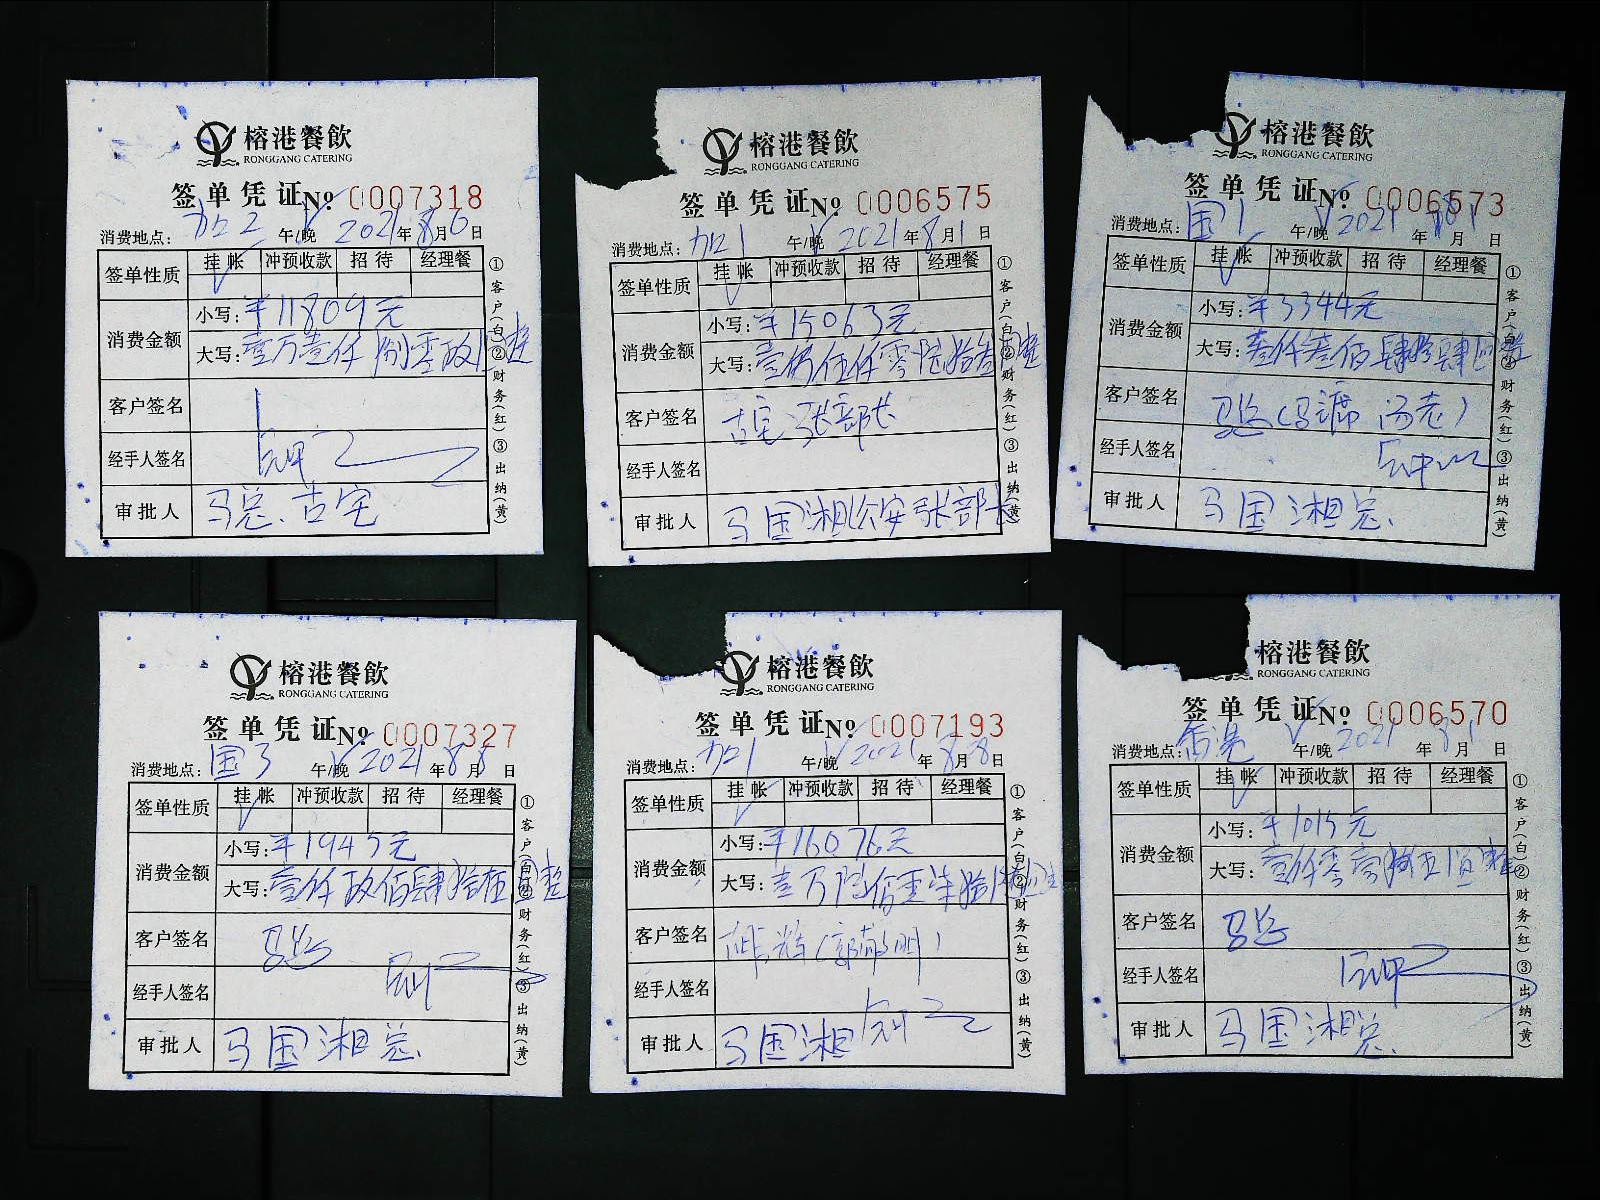 榕港餐飲
RONGGANG CATERING
签单凭证 No 0007318
消费地点: 加2 午/晚 2021年8月6日
签单性质 挂帐 冲预收款 招待 经理餐
消费金额 小写: ¥11809元
大写: 壹万壹仟捌零玖圆整
客户签名
经手人签名
审批人 马总、古宅
①客户(白)②财务(红)③出纳(黄)
榕港餐飲
RONGGANG CATERING
签单凭证 No 0006575
消费地点: 加1 午/晚 2021年8月1日
签单性质 挂帐 冲预收款 招待 经理餐
消费金额 小写: ¥15063元
大写: 壹万伍仟零陆拾叁圆整
客户签名 古宅张部长
经手人签名
审批人 马国湘(公安张部长
①客户(白)②财务(红)③出纳(黄)
榕港餐飲
RONGGANG CATERING
签单凭证 No 0006573
消费地点: 国1 午/晚 2021年8月1日
签单性质 挂帐 冲预收款 招待 经理餐
消费金额 小写: ¥3344元
大写: 叁仟叁佰肆拾肆圆整
客户签名 马总(马席 汤老)
经手人签名
审批人 马国湘总.
①客户(白)②财务(红)③出纳(黄)
榕港餐飲
RONGGANG CATERING
签单凭证 No 0007327
消费地点: 国3 午/晚 2021年8月8日
签单性质 挂帐 冲预收款 招待 经理餐
消费金额 小写: ¥1945元
大写: 壹仟玖佰肆拾伍圆整
客户签名 马总
经手人签名
审批人 马国湘总.
①客户(白)②财务(红)③出纳(黄)
榕港餐飲
RONGGANG CATERING
签单凭证 No 0007193
消费地点: 加1 午/晚 2021年8月8日
签单性质 挂帐 冲预收款 招待 经理餐
消费金额 小写: ¥16076元
大写: 壹万陆仟零柒拾陆圆整
客户签名
经手人签名
审批人 马国湘
①客户(白)②财务(红)③出纳(黄)
榕港餐飲
RONGGANG CATERING
签单凭证 No 0006570
消费地点: 香港 午/晚 2021年8月1日
签单性质 挂帐 冲预收款 招待 经理餐
消费金额 小写: ¥1015元
大写: 壹仟零壹拾五圆整
客户签名 马总
经手人签名
审批人 马国湘总.
①客户(白)②财务(红)③出纳(黄)